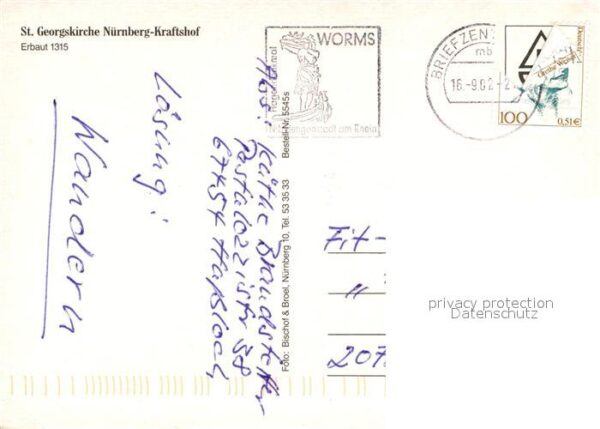 St. Georgskirche Nürnberg-Kraftshof
Erbaut 1315
WORMS
Nibelungenstadt am Rhein
BRIEFZEN
mb
16.-9.02-2
Deutsche
100
0,51€
Lösung:
Wandern
Abs.:
Käthe Brandstetter
Pestalozzistr 58
67454 Haßloch
Bestell-Nr. 5545s
Foto: Bischof & Broel, Nürnberg 10, Tel. 53 35 33
Fit-
"
207
privacy protection
Datenschutz